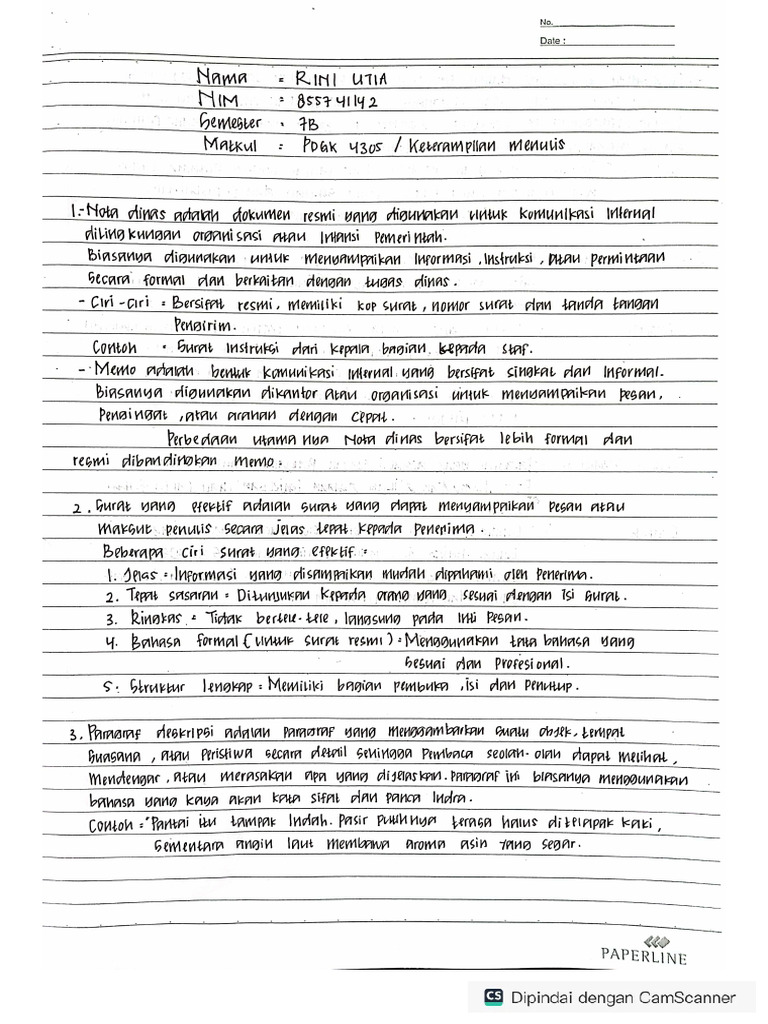 No.
Date :
Nama = RINI UTIA
NIM : 855741142
Semester : 7B
Matkul : PDGK 4305 / Keterampilan menulis
1.- Nota dinas adalah dokumen resmi yang digunakan untuk komunikasi Internal
dilingkungan organisasi atau Intansi Pemerintah.
Biasanya digunakan untuk menyampaikan Informasi, Instruksi, atau Permintaan
Secara formal dan berkaitan dengan tugas dinas.
- Ciri-ciri = Bersifat resmi, memiliki kop surat, nomor surat dan tanda tangan
Pengirim.
Contoh : Surat Instruksi dari kepala bagian kepada staf.
- Memo adalah bentuk komunikasi Internal yang bersifat singkat dan Informal.
Biasanya digunakan dikantor atau organisasi untuk menyampaikan pesan,
Pengingat, atau arahan dengan cepat.
Perbedaan utama nya Nota dinas bersifat lebih formal dan
resmi dibandingkan memo.
2. Surat yang efektif adalah surat yang dapat menyampaikan Pesan atau
maksut penulis secara jelas tepat kepada Penerima.
Beberapa ciri surat yang efektif =
1. Jelas = Informasi yang disampaikan mudah dipahami oleh Penerima.
2. Tepat sasaran = Ditunjukan kepada orang yang sesuai dengan isi surat.
3. Ringkas = Tidak bertele-tele, langsung pada Inti Pesan.
4. Bahasa formal (untuk surat resmi) = Menggunakan tata bahasa yang
Sesuai dan Profesional.
5. Struktur lengkap = Memiliki bagian pembuka, isi dan Penutup.
3. Paragraf deskripsi adalah Paragraf yang menggambarkan suatu objek, tempat
Suasana, atau Peristiwa secara detail sehingga Pembaca seolah-olah dapat melihat,
Mendengar, atau merasakan apa yang dijelaskan. Paragraf ini biasanya menggunakan
bahasa yang kaya akan kata sifat dan panca Indra.
Contoh = "Pantai itu tampak Indah. Pasir Putihnya terasa halus ditelapak kaki,
Sementara angin laut membawa aroma asin yang segar.
PAPERLINE
CS Dipindai dengan CamScanner